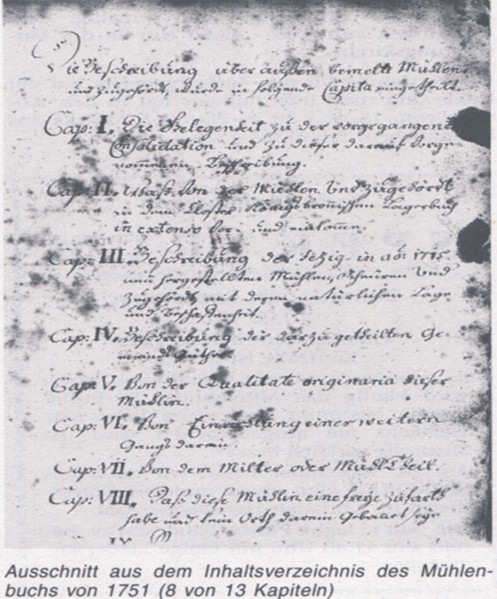 Die Beschreibung über außen bemelte Mühlen
und Zugehördt, wurde in folgende Capita eingetheilt.
Cap: I. Die Gelegenheit zu der vorgegangene
Consolidation und zu dieser darauf vorge
nommenen Beschreibung.
Cap: II. Waß von der Mühlen und Zugehördt
in dem Closter Königsbronnischen Lagerbuch
in extenso vor- und
Cap: III. Beschreibung der Jezig- in ao: 1715
neu hergestellten Mühlen, Scheuren und
Zugehördt mit deren natürlichen Lage
und Beschaffenheit.
Cap: IV. Beschreibung der darzu getheilten Ge-
Güther.
Cap: V. Von der Qualitate originaria dieser
Mühlin.
Cap: VI. Von einer weitern
Gangs darein.
Cap: VII. Von dem Milter oder Mühl Theil.
Cap: VIII. Daß diese Mühlin eine freye Zufarth
habe und kein Orth darein Gebauet seye
IX
Ausschnitt aus dem Inhaltsverzeichnis des Mühlen-
buchs von 1751 (8 von 13 Kapiteln)